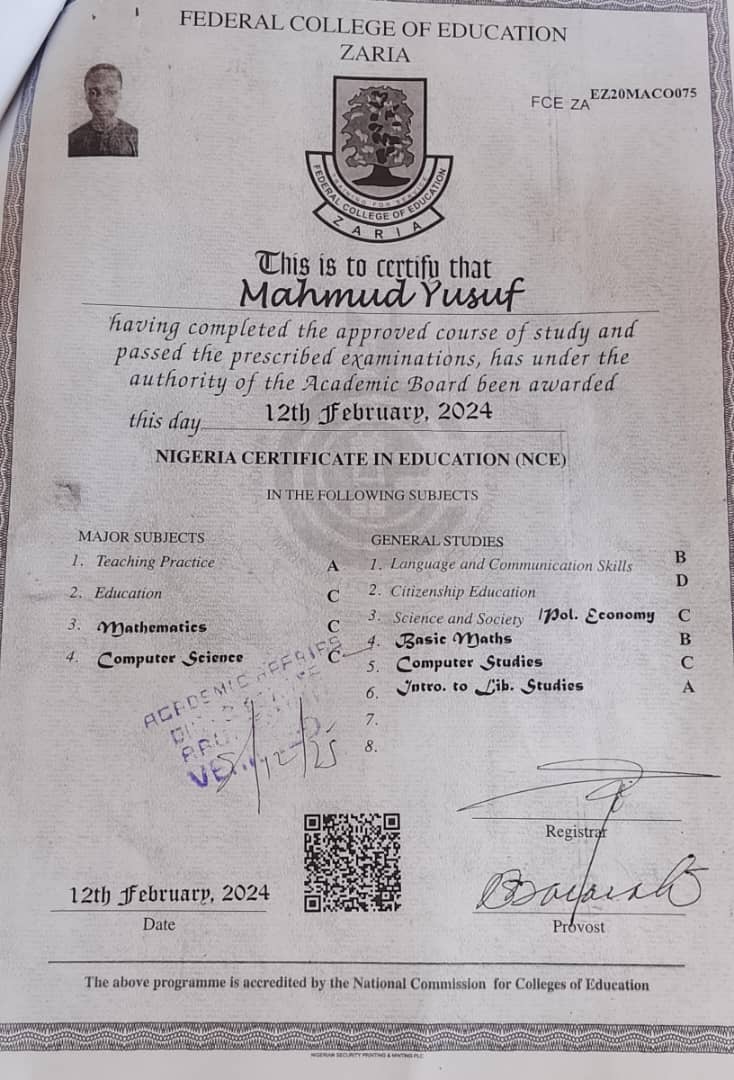 FEDERAL COLLEGE OF EDUCATION
ZARIA
FCE ZA EZ20MACO075
TRAINING FOR SERVICE
FEDERAL COLLEGE OF EDUCATION
ZARIA
This is to certify that
Mahmud Yusuf
having completed the approved course of study and
passed the prescribed examinations, has under the
authority of the Academic Board been awarded
this day 12th February, 2024
NIGERIA CERTIFICATE IN EDUCATION (NCE)
IN THE FOLLOWING SUBJECTS
MAJOR SUBJECTS
1. Teaching Practice A
2. Education C
3. Mathematics C
4. Computer Science C
GENERAL STUDIES
1. Language and Communication Skills B
2. Citizenship Education D
3. Science and Society /Pol. Economy C
4. Basic Maths B
5. Computer Studies C
6. Intro. to Lib. Studies A
7.
8.
ACADEMIC AFFAIRS
5/12/25
Registrar
12th February, 2024
Date
Provost
The above programme is accredited by the National Commission for Colleges of Education
NIGERIAN SECURITY PRINTING & MINTING PLC